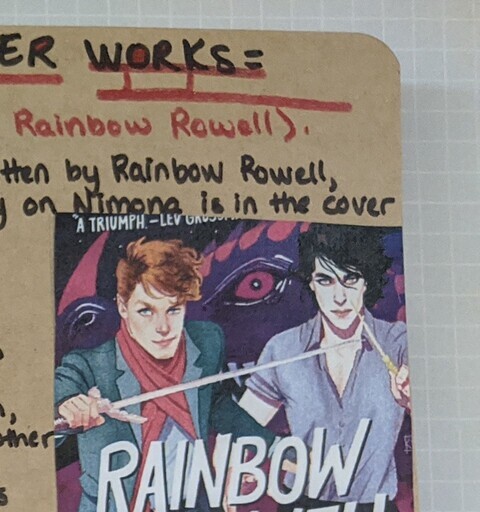 ER WORKS=
Rainbow Rowell).
tten by Rainbow Rowell,
y on Nimona is in the cover
"A TRIUMPH." —LEV
other
RAINBOW